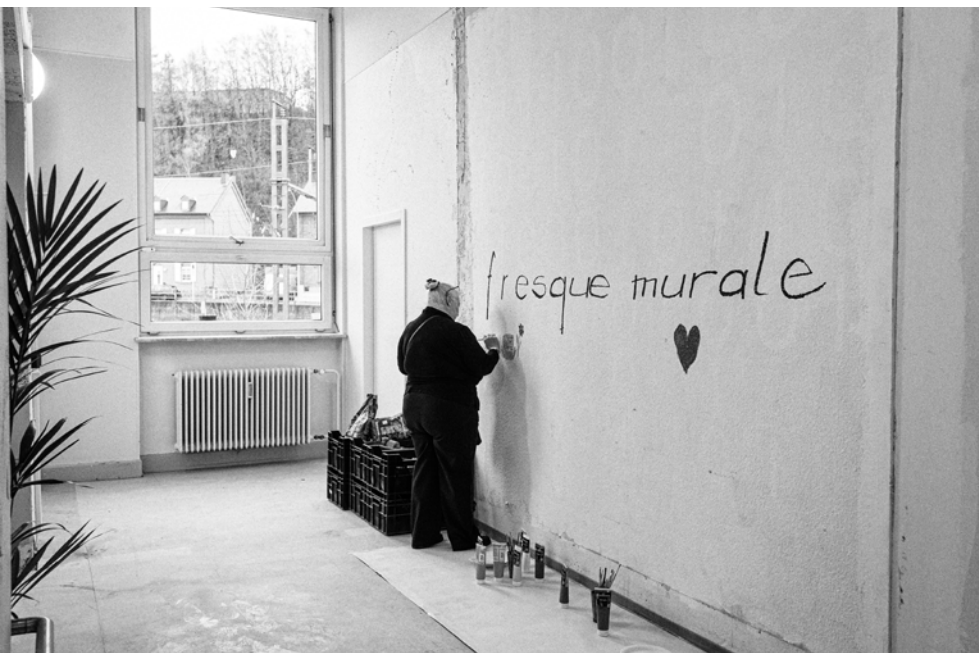 fresque murale